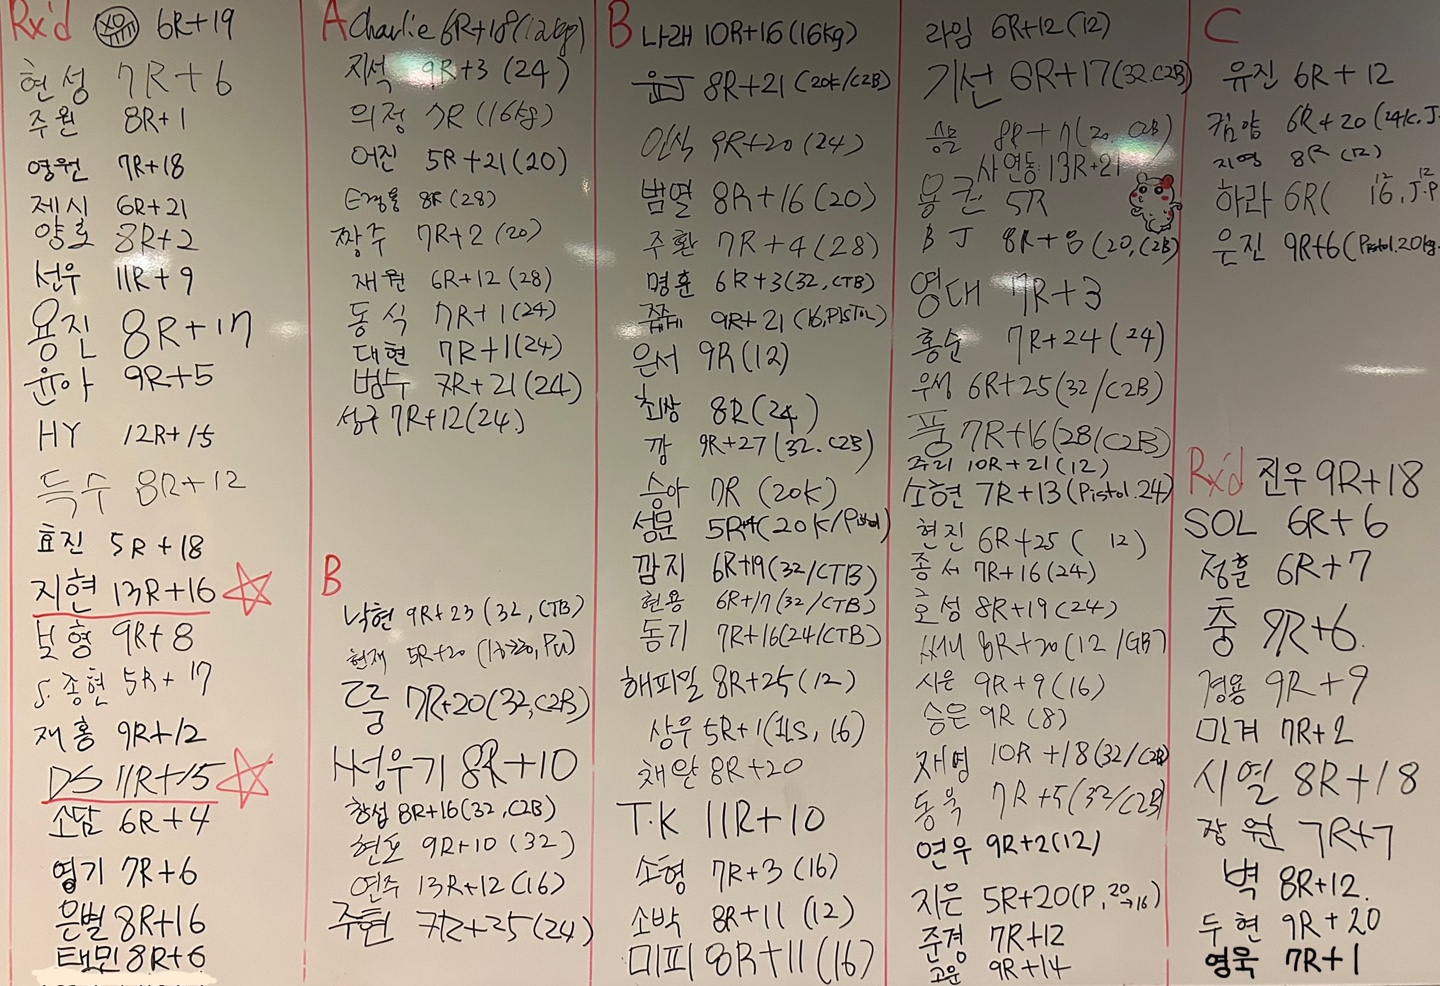 Rx'd 6R+19
현성 7R+6
주원 8R+1
영원 7R+18
제시 6R+21
양호 8R+2
선우 11R+9
용진 8R+17
윤아 9R+5
HY 12R+15
득수 8R+12
효진 5R+18
지현 13R+16
보형 9R+8
S.종현 5R+17
재홍 9R+12
DS 11R+15
소담 6R+4
영기 7R+6
은별 8R+16
태민 8R+6
A Charlie 6R+18(12kg)
지석 9R+3 (24)
의정 7R (16kg)
어진 5R+21(20)
8R (28)
짱주 7R+2 (20)
재원 6R+12 (28)
동식 7R+1(24)
대현 7R+1(24)
범수 7R+21(24)
성구 7R+12(24)
B
낙현 9R+23 (32, CTB)
현재 5R+20
7R+20(32,C2B)
H성우기 8R+10
창섭 8R+16(32,C2B)
현포 9R+10 (32)
연주 13R+12(16)
주현 7R+25(24)
B 나래 10R+16(16kg)
윤J 8R+21 (20k/C2B)
인식 9R+20(24)
범열 8R+16(20)
주환 7R+4(28)
명훈 6R+3(32,CTB)
9R+21 (16,PISTOL)
은서 9R(12)
최쌍 8R(24)
깡 9R+27 (32.C2B)
승아 7R (20K)
성문 (20K/Pistol)
깜지 6R+19(32/CTB)
현용 6R+17(32/CTB)
동기 7R+16(24/CTB)
해피밀 8R+25(12)
상우 5R+1 16)
채완 8R+20
T.K 11R+10
소형 7R+3(16)
소박 8R+11 (12)
미피 8R+11(16)
라임 6R+12(12)
기선 6R+17(32.C2B)
8R+7(20, C2B)
사연동 13R+21
용권 5R
BJ 8R+8(20,C2B)
영대 7R+3
홍순 7R+24(24)
우성 6R+25(32/C2B)
풍 7R+16(28/C2B)
주리 10R+21(12)
소현 7R+13(Pistol.24)
현진 6R+25( 12)
종서 7R+16(24)
호성 8R+19(24)
써니 8R+20(12/GB)
시은 9R+9(16)
승은 9R (8)
재영 10R+18(32/C2B)
동욱 7R+5(32/C2B)
연우 9R+2(12)
지은 5R+20(P,20→16)
준경 7R+12
고운 9R+14
C
유진 6R+12
김양 6R+20(24K,J.
지영 8R (12)
하라 6R( 16,J.P
은진 9R+6(Pistol.20kg
Rx'd 진우 9R+18
SOL 6R+6
정훈 6R+7
충 9R+6.
경용 9R+9
민겨 7R+2
시열 8R+18
장원 7R+7
벽 8R+12.
두현 9R+20
영욱 7R+1